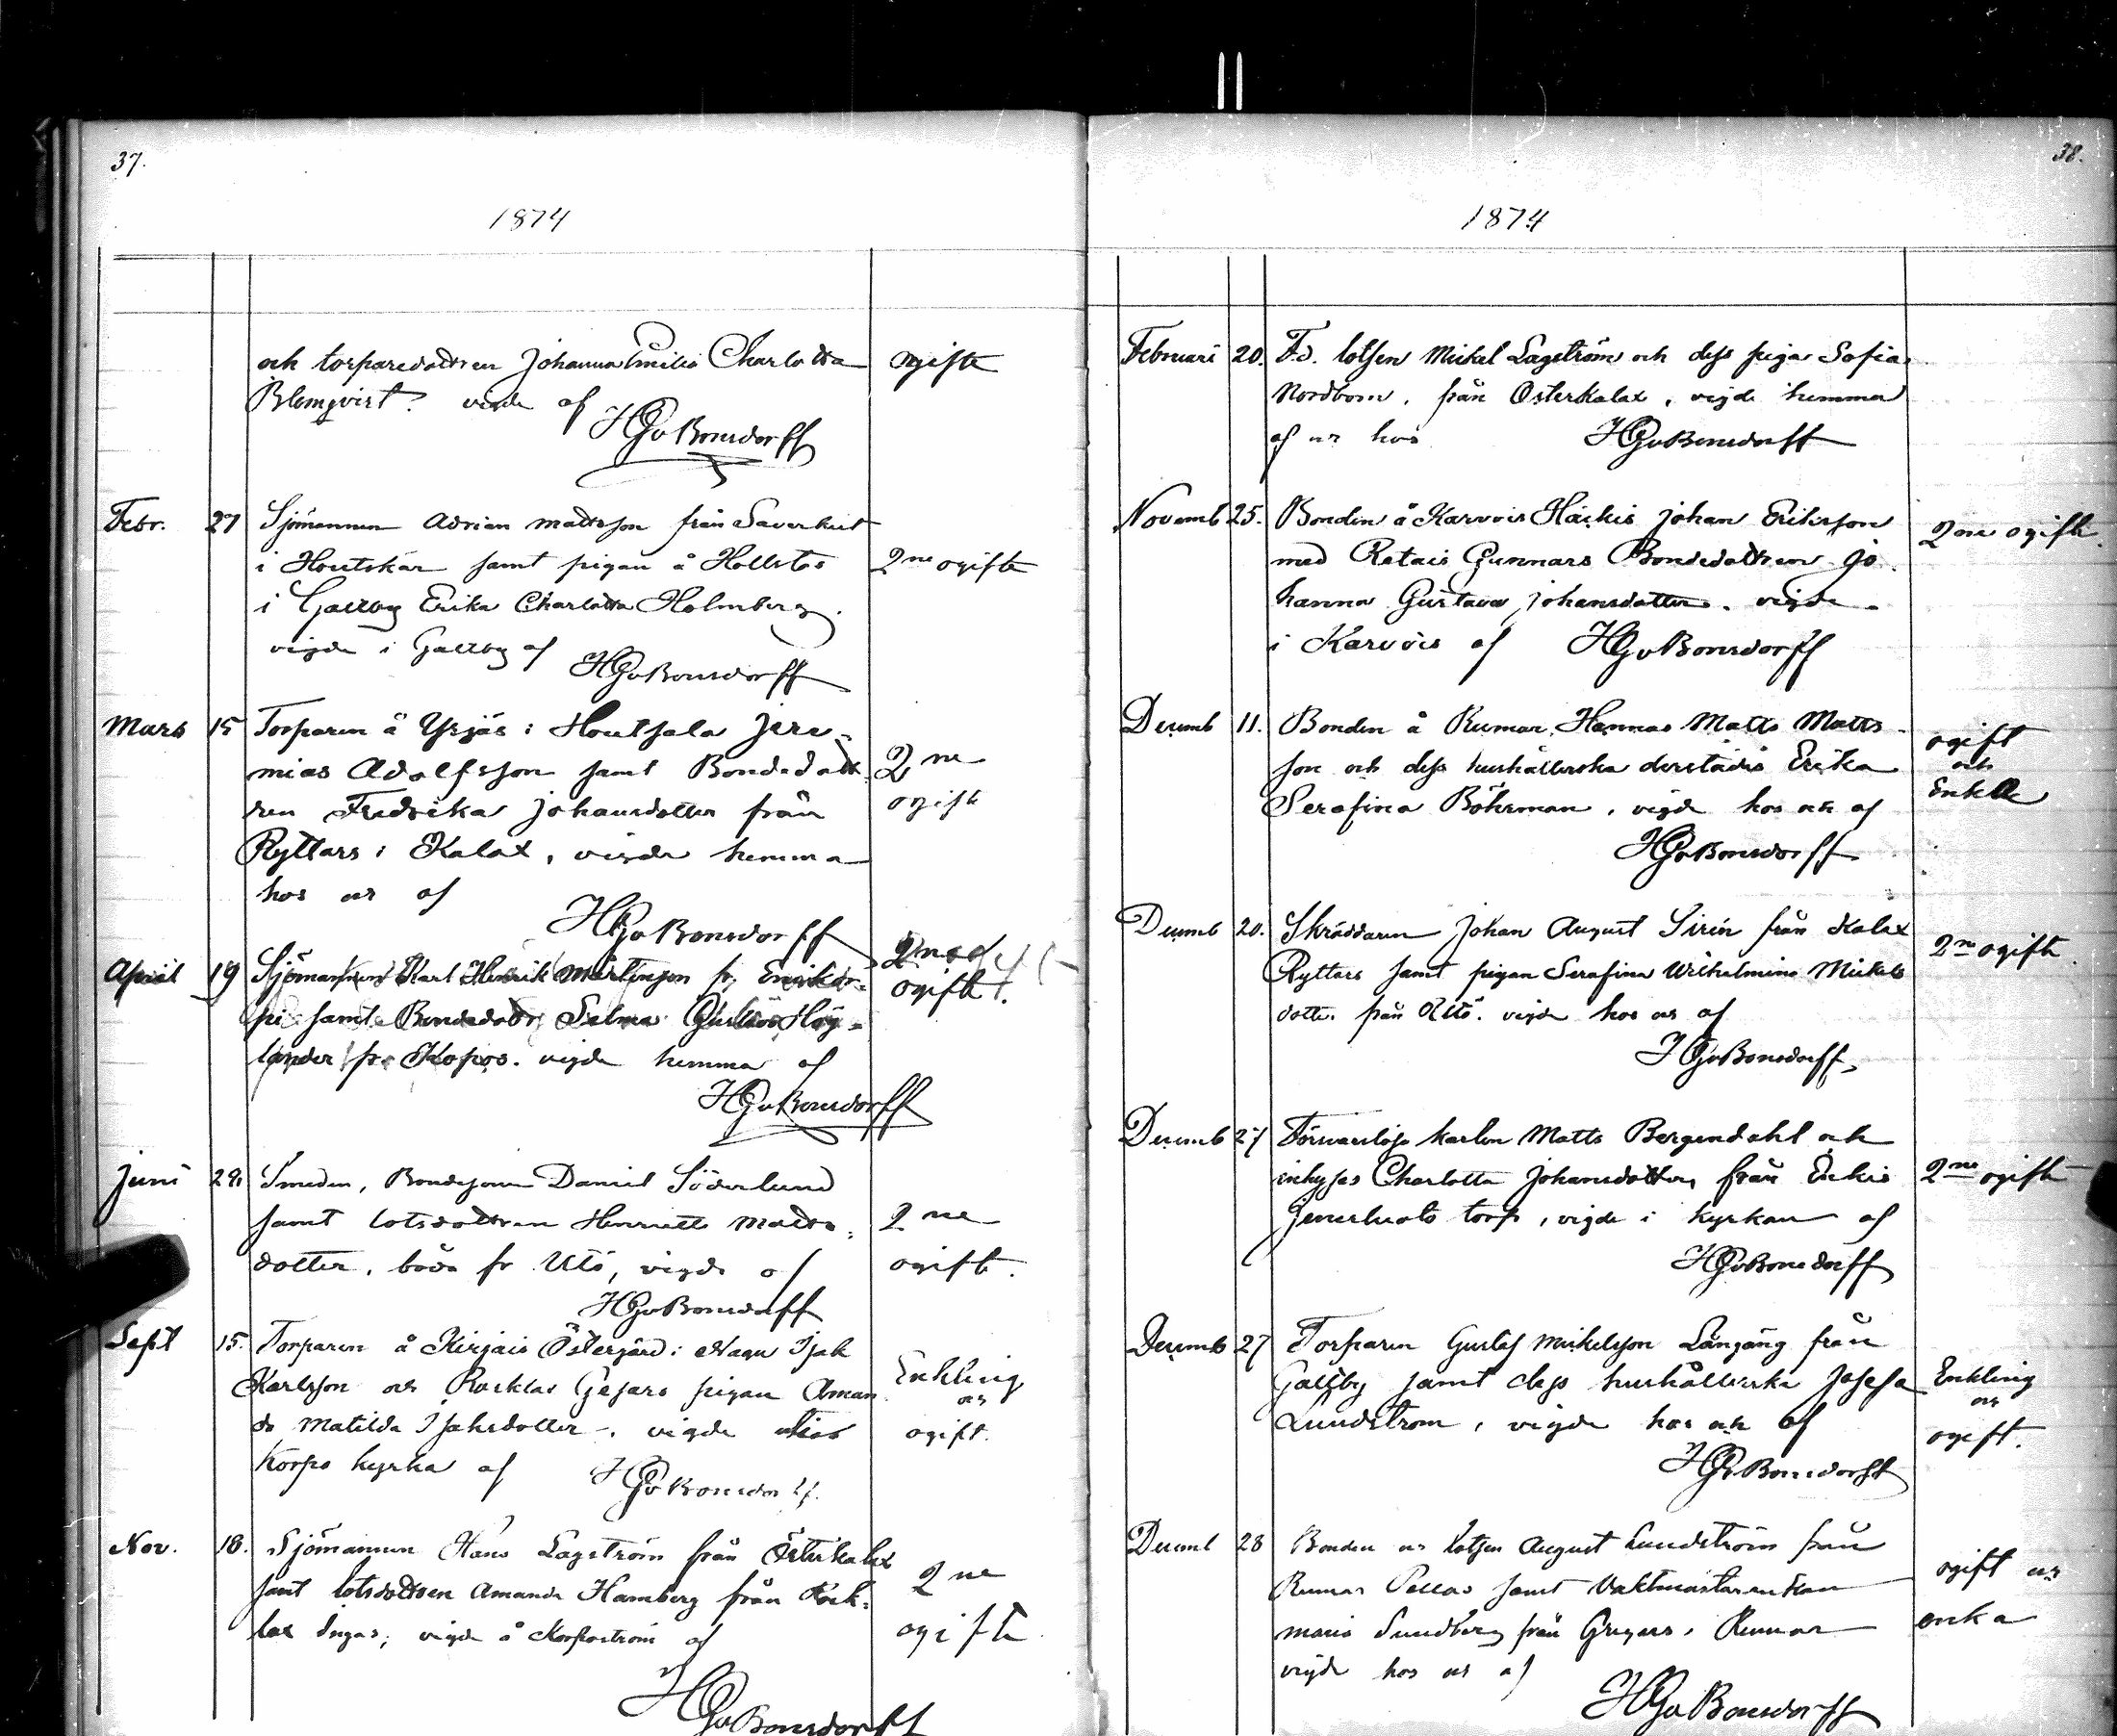 37.
1874
och torparedottren Johanna Emilia Charlotta
Blomqvist. vigde af
HGvBonsdorff
ogifte
Febr. 27 Sjömannen Adrian Mattsson från Saverkeit
i Houtskär samt pigan å Hollstes
i Galtby Erika Charlotta Holmberg.
vigde i Galtby af
HGvBonsdorff
2ne ogifte
Mars 15 Torparen å Yrjäs i Houtsala Jere-
mias Adolfsson samt Bondedott-
ren Fredrika Johansdotter från
Ryttars i Kalax, vigde hemma
hos oss af
HGvBonsdorff
2ne
ogift
April 19 Sjömannen Karl Henrik Mårtinson fr.
samt Bondedottr Selma Hög-
lander fr Kopos. vigde hemma af
HGvBonsdorff
ogifte.
Juni 28. Smeden, Bondesonen Daniel Söderlund
samt lotsdottren Henriette Matts-
dotter, båda fr Utö, vigde af
HGvBonsdorff
2ne
ogifte.
Sept 15. Torparen å Kirjais Östergård i Nagu Isak
Karlsson och Rocklax Gesars pigan Aman
da Matilda Isaksdotter, vigde
Korpo kyrka af HGvBonsdorff.
Enkling
och
ogift.
Nov. 18. Sjömannen Hans Lagström från Österkalax
samt lotsdottren Amanda Hamberg från Rock-
lax Ingas; vigde å Korpoström af
HGvBonsdorff
2ne
ogifte
38.
1874
Februari 20. F.d. lotsen Mickel Lagström och dess piga Sofia
Nordbom, från Österkalax, vigde hemma
af oss hos HGvBonsdorff
Novemb 25. Bonden å Karvois Häckis Johan Eriksson
med Retais Gunnars Bondedottren Jo-
hanna Gustava Johansdotter. vigde
i Karvois af HGvBonsdorff
2ne ogifte.
Decemb 11. Bonden å Rumar Hannas Matts Matts-
son och dess hushållerska derstädes Erika
Serafina Böhrman, vigde hos oss af
HGvBonsdorff
ogift
och
Enka
Decemb 20. Skräddaren Johan August Sirén från Kalax
Ryttars samt pigan Serafina Wilhelmina Mickels
dotter från Utö. vigde hos oss af
HGvBonsdorff,
2ne ogifte.
Decemb 27 Försvarslöse karlen Matts Bergendahl och
inhyses Charlotta Johansdotter från
torp, vigde i kyrkan af
HGvBonsdorff
2ne ogifte
Decemb 27 Torparen Gustaf Mickelsson Långäng från
Galtby samt dess hushållerska Josefa
Lundström, vigde hos oss af
HGvBonsdorff
Enkling
och
ogift.
Decemb 28 Bonden och lotsen August Lundström från
Rumar Pellas samt Vaktmästarenkan
Maria Sundberg från Gregers, Rumar
vigde hos oss af
HGvBonsdorff
ogift och
enka